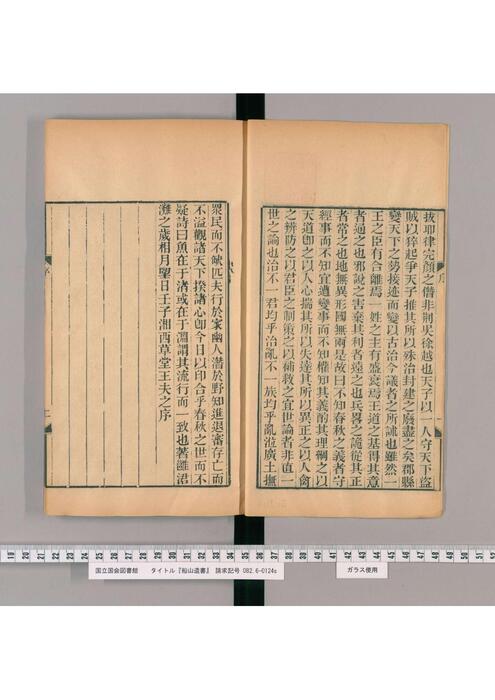 拔耶律完顏之僭非荊吳徐越也天子以一人守天下盜
賊以猝起爭天子推其所以殊治封建之廢盡之矣郡縣
變天下之勢接迹而變以古治今議者之所詘也雖然一
王之臣有合離焉一姓之主有盛衰焉王道之基得其意
者通之也邪說之害棄其利者遠之也兵畧之詭從其正
者常之也地無異形國無兩是故曰不知春秋之義者守
經事而不知宜遭變事而不知權知其義酌其理綱之以
天道卽之以人心揣其所以失達其所以異正之以人禽
之辨防之以君臣之制策之以補救之宜世論者非直一
世之論也治不一君均乎治亂不一族均乎亂涖廣土撫
序
眾民而不缺匹夫行於家幽人潛於野知進退審存亡而
不溢觀諸天下揆諸心卽今日以印合乎春秋之世而不
疑詩曰魚在于渚或在于淵謂其流行而一致也著雝涒
灘之歲相月望日壬子湘西草堂王夫之序
序
二
19 20 21 22 23 24 25 26 27 28 29 30 31 32 33 34 35 36 37
41 42 43 44 45 46 47 48 49 50 51 52
国立国会図書館 タイトル『船山遺書』 請求記号 082.6-O124s
ガラス使用